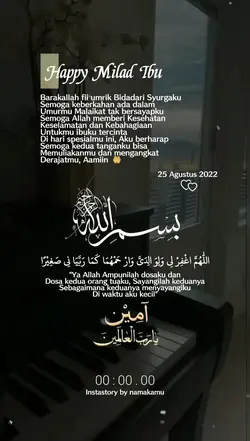 Happy Milad Ibu
Barakallah fii umrik Bidadari Syurgaku
Semoga keberkahan ada dalam
Umurmu Malaikat tak bersayapku
Semoga Allah memberi Kesehatan
Keselamatan dan Kebahagiaan
Untukmu ibuku tercinta
Di hari spesialmu ini, Aku berharap
Semoga kedua tanganku bisa
Memuliakanmu dan mengangkat
Derajatmu, Aamiin 🤲
25 Agustus 2022
بسم الله
اللّٰهُمَّ اغْفِرْ لِي وَلِوَالِدَيَّ وَارْحَمْهُمَا كَمَا رَبَّيَانِي صَغِيرًا
"Ya Allah Ampunilah dosaku dan
Dosa kedua orang tuaku, Sayangilah keduanya
Sebagaimana keduanya menyayangiku
Di waktu aku kecil"
آمِيْن
يَارَبَّ الْعَالَمِيْن
00:00.00
Instastory by namakamu